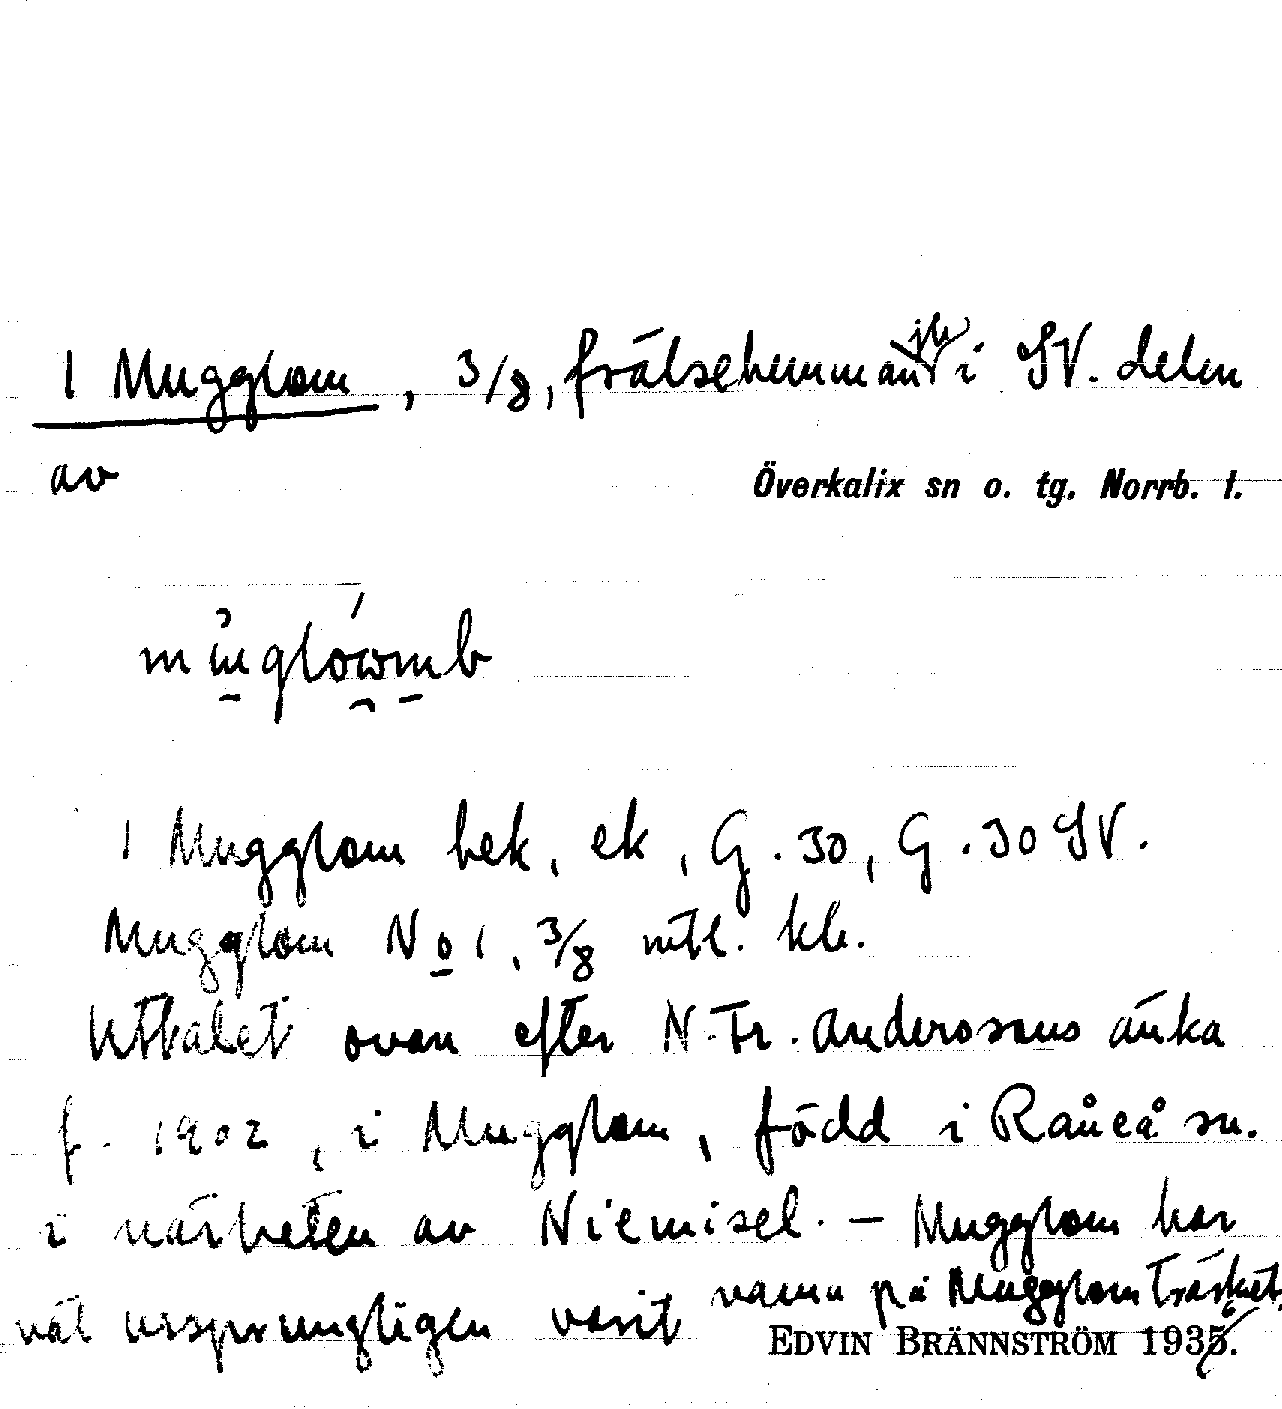 1 Mugglom, 3/8, frälsehemman i SV. delen
av Överkalix sn o. tg. Norrb. l.
1 Mugglom bek, ek, G. 30, G. 30 SV.
Mugglom No 1, 3/8 mtl. kb.
Uttalet ovan efter N. Fr. Anderssons änka
f. 1902, i Mugglom, född i Råneå sn.
i närheten av Niemisel. – Mugglom har
väl ursprungligen varit namn på Mugglomträsket.
EDVIN BRÄNNSTRÖM 1936.